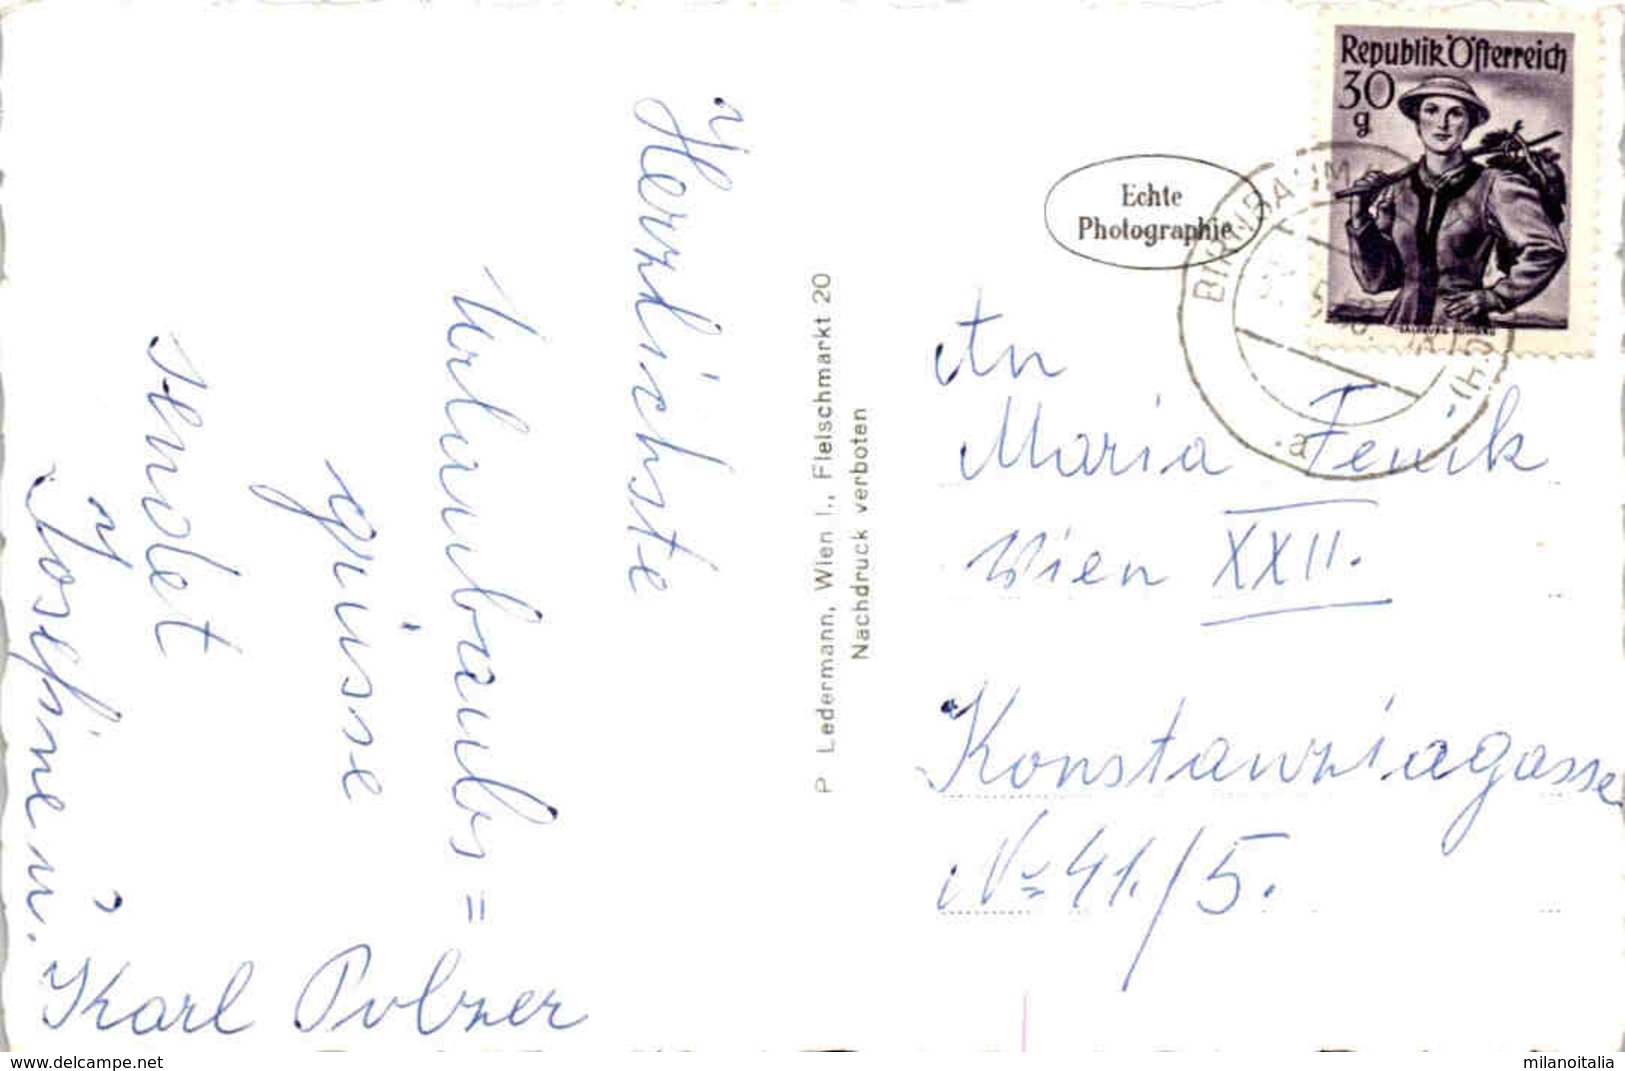 Herzlichste
Urlaubs=
grüsse
sendet
Josefine u.
Karl Polzer
P Ledermann, Wien I., Fleischmarkt 20
Nachdruck verboten
Echte
Photographie
Republik Österreich
30
g
BIRNBAUM
a
An
Maria Fenik
Wien XXII.
Konstanziagasse
No 41./5.
www.delcampe.net
milanoitalia